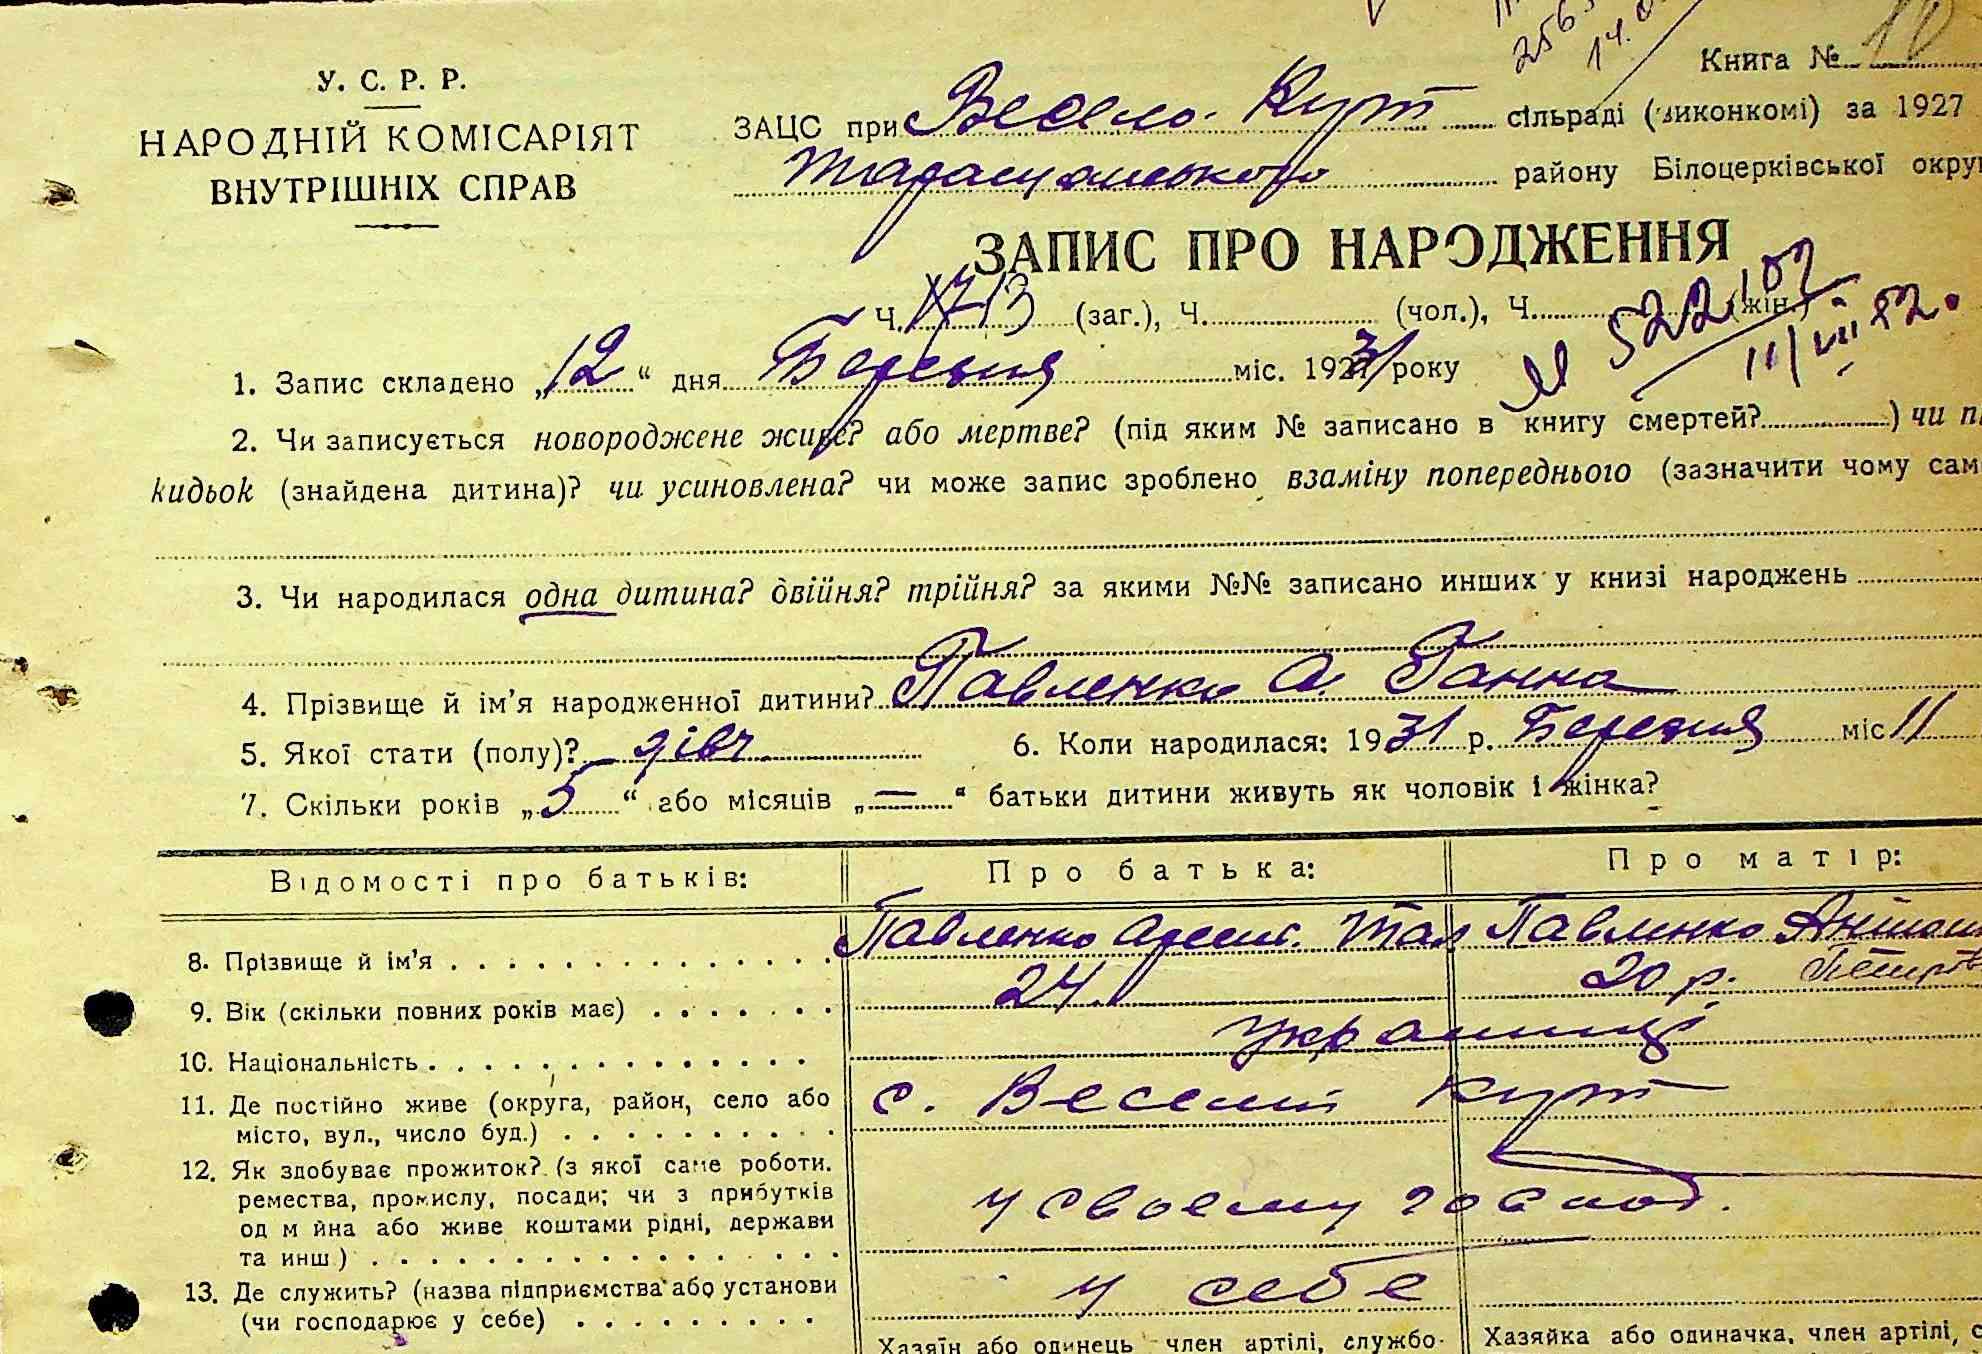 Книга № 10
У. С. Р. Р.
НАРОДНІЙ КОМІСАРІЯТ
ВНУТРІШНІХ СПРАВ
ЗАЦС при Весело-Кут сільраді (виконкомі) за 1927
Таращанського району Білоцерківської окру
ЗАПИС ПРО НАРОДЖЕННЯ
Ч. 13 (заг.), Ч. (чол.), Ч. (жін.)
1. Запис складено „12“ дня Березня міс. 1931 року
№ 522102
11/VII 52.
2. Чи записується новороджене живе? або мертве? (під яким № записано в книгу смертей?) чи п
кидьок (знайдена дитина)? чи усиновлена? чи може запис зроблено взаміну попереднього (зазначити чому сам
3. Чи народилася одна дитина? двійня? трійня? за якими №№ записано инших у книзі народжень
4. Прізвище й ім'я народженної дитини? Павленко А. Ганна
5. Якої стати (полу)? дівч 6. Коли народилася: 1931 р. Березня міс 11
7. Скільки років „5“ або місяців „—“ батьки дитини живуть як чоловік і жінка?
Відомості про батьків: Про батька: Про матір:
8. Прізвище й ім'я Павленко Арсент. Павленко
9. Вік (скільки повних років має) 24 20 р.
10. Національність українці
11. Де постійно живе (округа, район, село або
місто, вул., число буд.) с. Веселий Кут
12. Як здобуває прожиток? (з якої саме роботи.
ремества, промислу, посади; чи з прибутків
од м йна або живе коштами рідні, держави
та инш) у своему господ.
13. Де служить? (назва підприємства або установи
(чи господарює у себе) у себе
Хазяїн або одинець член артілі, службо-
Хазяйка або одиначка, член артілі, с